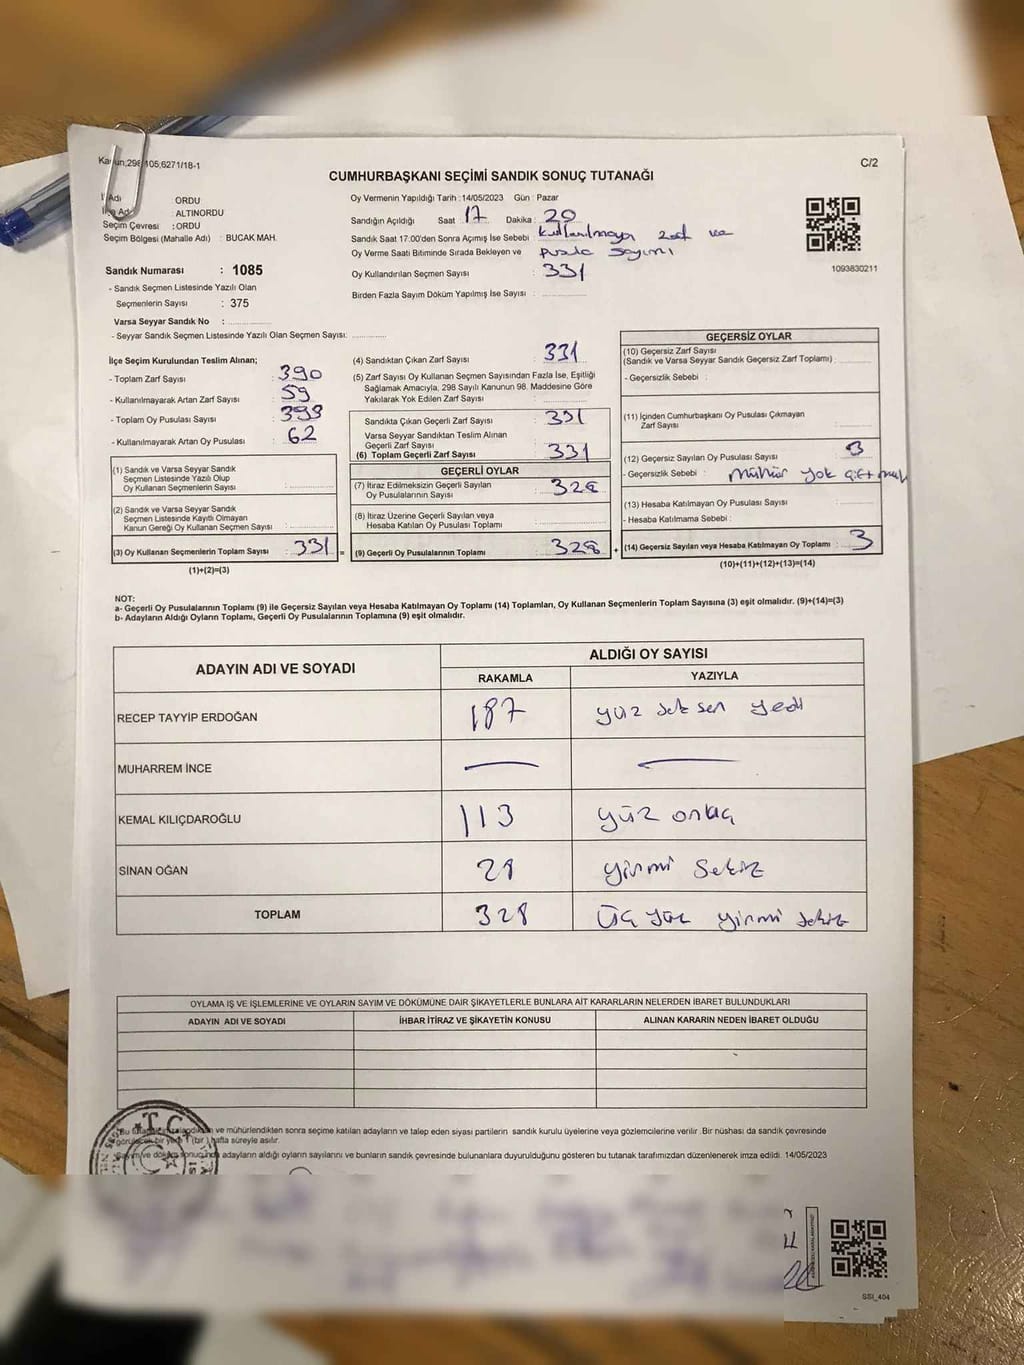 Kanun;298,105,6271/18-1
C/2
CUMHURBAŞKANI SEÇİMİ SANDIK SONUÇ TUTANAĞI
İl Adı : ORDU
İlçe Adı : ALTINORDU
Seçim Çevresi : ORDU
Seçim Bölgesi (Mahalle Adı) : BUCAK MAH.
Oy Vermenin Yapıldığı Tarih : 14/05/2023 Gün : Pazar
Sandığın Açıldığı Saat : 17 Dakika : 20
Sandık Saat 17:00'den Sonra Açımış İse Sebebi : kullanılmayan zarf ve
Oy Verme Saati Bitiminde Sırada Bekleyen ve pusula sayımı
Oy Kullandırılan Seçmen Sayısı : 331
Birden Fazla Sayım Döküm Yapılmış İse Sayısı :
1093830211
Sandık Numarası : 1085
- Sandık Seçmen Listesinde Yazılı Olan
Seçmenlerin Sayısı : 375
Varsa Seyyar Sandık No :
- Seyyar Sandık Seçmen Listesinde Yazılı Olan Seçmen Sayısı:
İlçe Seçim Kurulundan Teslim Alınan;
- Toplam Zarf Sayısı : 390
- Kullanılmayarak Artan Zarf Sayısı : 59
- Toplam Oy Pusulası Sayısı : 393
- Kullanılmayarak Artan Oy Pusulası : 62
(1) Sandık ve Varsa Seyyar Sandık
Seçmen Listesinde Yazılı Olup
Oy Kullanan Seçmenlerin Sayısı :
(2) Sandık ve Varsa Seyyar Sandık
Seçmen Listesinde Kayıtlı Olmayan
Kanun Gereği Oy Kullanan Seçmen Sayısı :
(3) Oy Kullanan Seçmenlerin Toplam Sayısı : 331 =
(1)+(2)=(3)
(4) Sandıktan Çıkan Zarf Sayısı : 331
(5) Zarf Sayısı Oy Kullanan Seçmen Sayısından Fazla İse, Eşitliği
Sağlamak Amacıyla, 298 Sayılı Kanunun 98. Maddesine Göre
Yakılarak Yok Edilen Zarf Sayısı :
Sandıkta Çıkan Geçerli Zarf Sayısı : 331
Varsa Seyyar Sandıktan Teslim Alınan
Geçerli Zarf Sayısı :
(6) Toplam Geçerli Zarf Sayısı : 331
GEÇERLİ OYLAR
(7) İtiraz Edilmeksizin Geçerli Sayılan
Oy Pusulalarının Sayısı : 328
(8) İtiraz Üzerine Geçerli Sayılan veya
Hesaba Katılan Oy Pusulası Toplamı :
(9) Geçerli Oy Pusulalarının Toplamı : 328 +
GEÇERSİZ OYLAR
(10) Geçersiz Zarf Sayısı
(Sandık ve Varsa Seyyar Sandık Geçersiz Zarf Toplamı) :
- Geçersizlik Sebebi :
(11) İçinden Cumhurbaşkanı Oy Pusulası Çıkmayan
Zarf Sayısı :
(12) Geçersiz Sayılan Oy Pusulası Sayısı : 3
- Geçersizlik Sebebi : mühür yok çift
(13) Hesaba Katılmayan Oy Pusulası Sayısı :
- Hesaba Katılmama Sebebi :
(14) Geçersiz Sayılan veya Hesaba Katılmayan Oy Toplamı : 3
(10)+(11)+(12)+(13)=(14)
NOT:
a- Geçerli Oy Pusulalarının Toplamı (9) ile Geçersiz Sayılan veya Hesaba Katılmayan Oy Toplamı (14) Toplamları, Oy Kullanan Seçmenlerin Toplam Sayısına (3) eşit olmalıdır. (9)+(14)=(3)
b- Adayların Aldığı Oyların Toplamı, Geçerli Oy Pusulalarının Toplamına (9) eşit olmalıdır.
ADAYIN ADI VE SOYADI ALDIĞI OY SAYISI
RAKAMLA YAZIYLA
RECEP TAYYİP ERDOĞAN 187 yüz seksen yedi
MUHARREM İNCE — —
KEMAL KILIÇDAROĞLU 113 yüz onüç
SİNAN OĞAN 28 yirmi sekiz
TOPLAM 328 Üç yüz yirmi sekiz
OYLAMA İŞ VE İŞLEMLERİNE VE OYLARIN SAYIM VE DÖKÜMÜNE DAİR ŞİKAYETLERLE BUNLARA AİT KARARLARIN NELERDEN İBARET BULUNDUKLARI
ADAYIN ADI VE SOYADI İHBAR İTİRAZ VE ŞİKAYETİN KONUSU ALINAN KARARIN NEDEN İBARET OLDUĞU
T.C.
ve mühürlendikten sonra seçime katılan adayların ve talep eden siyasi partilerin sandık kurulu üyelerine veya gözlemcilerine verilir. Bir nüshası da sandık çevresinde
görülecek bir yere 1 (bir) hafta süreyle asılır.
adayların aldığı oyların sayılarını ve bunların sandık çevresinde bulunanlara duyurulduğunu gösteren bu tutanak tarafımızdan düzenlenerek imza edildi. 14/05/2023
SSI_404